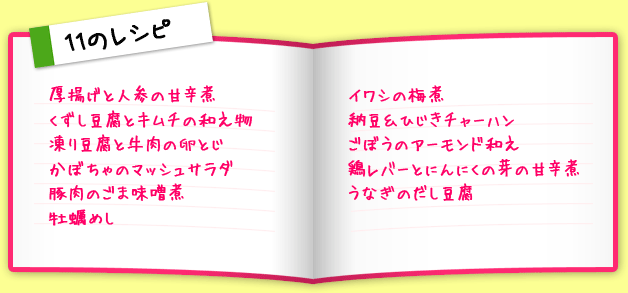 11のレシピ
厚揚げと人参の甘辛煮
くずし豆腐とキムチの和え物
凍り豆腐と牛肉の卵とじ
かぼちゃのマッシュサラダ
豚肉のごま味噌煮
牡蠣めし
イワシの梅煮
納豆&ひじきチャーハン
ごぼうのアーモンド和え
鶏レバーとにんにくの芽の甘辛煮
うなぎのだし豆腐